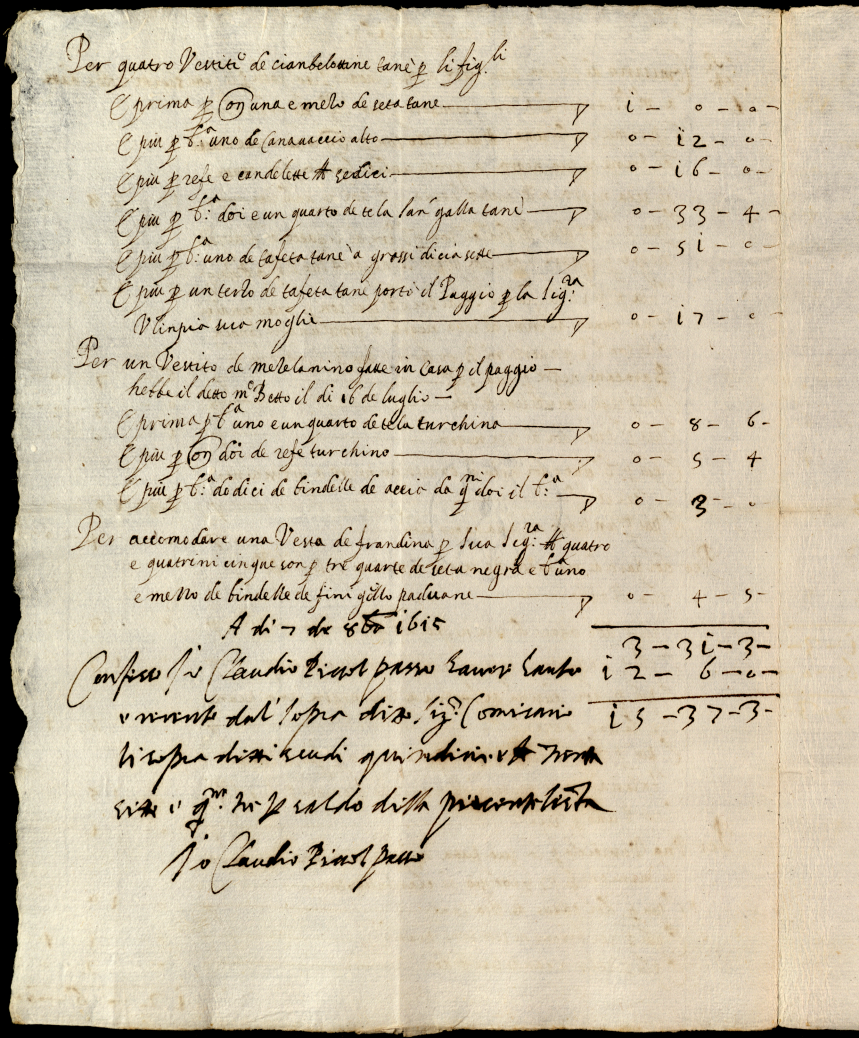 Per quatro Vestiti de cianbelottine tanè p li figli
E prima p on una e mezo de seta tane i - 0 - 0 -
E piu p b.a uno de Canavaccio alto 0 - i2 - 0 -
E piu p refe e candelette sedici 0 - i6 - 0 -
E piu p b.a doi e un quarto de tela San galla tanè 0 - 33 - 4 -
E piu p b.a uno de tafeta tanè a grossi diciasette 0 - 5i - 0 -
E piu p un terzo de tafeta tane portò il Paggio p la Sig.ra
Ulinpia sua moglie 0 - i7 - 0
Per un Vestito de mezelanino fatto in Casa p il paggio
hebbe il detto m.o Betto il di i6 de luglio
E prima p b.a uno e un quarto de tela turchina 0 - 8 - 6 -
E piu p on doi de refe turchino 0 - 5 - 4
E piu p b.a dodici de bindelle de accia da q.ni doi il b.a 0 - 3 - 0
Per accomodare una Vesta de frandina p Sua Sig.ra quatro
e quatrini cinque son p tre quarte de seta negra e b.a uno
e mezzo de bindelle de fini gillo paduane 0 - 4 - 5 -
A di 7 de 8b i6i5 3 - 3i - 3 -
Confesso Io Claudio Piccol passo haver hauto i2 - 6 - 0 -
e receute dal sopra ditto Sig. i5 - 37 - 3 -
li sopra ditti scudi quindici e trenta
sette e q.ni tre p saldo della presente lista
Io Claudio Piccol passo